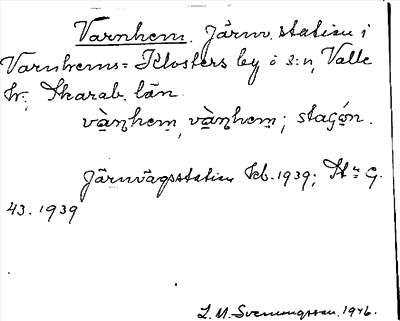 Varnhem. Järnv. station i
Varnhems-Klosters by o s:n, Valle
hr; Skarab. län.
vàrn̥hem̥, vàrn̥hem̥; stasjón.
Järnvägsstation Kb. 1939; St:n G.
43. 1939
L. M. Svenungsson. 1946.